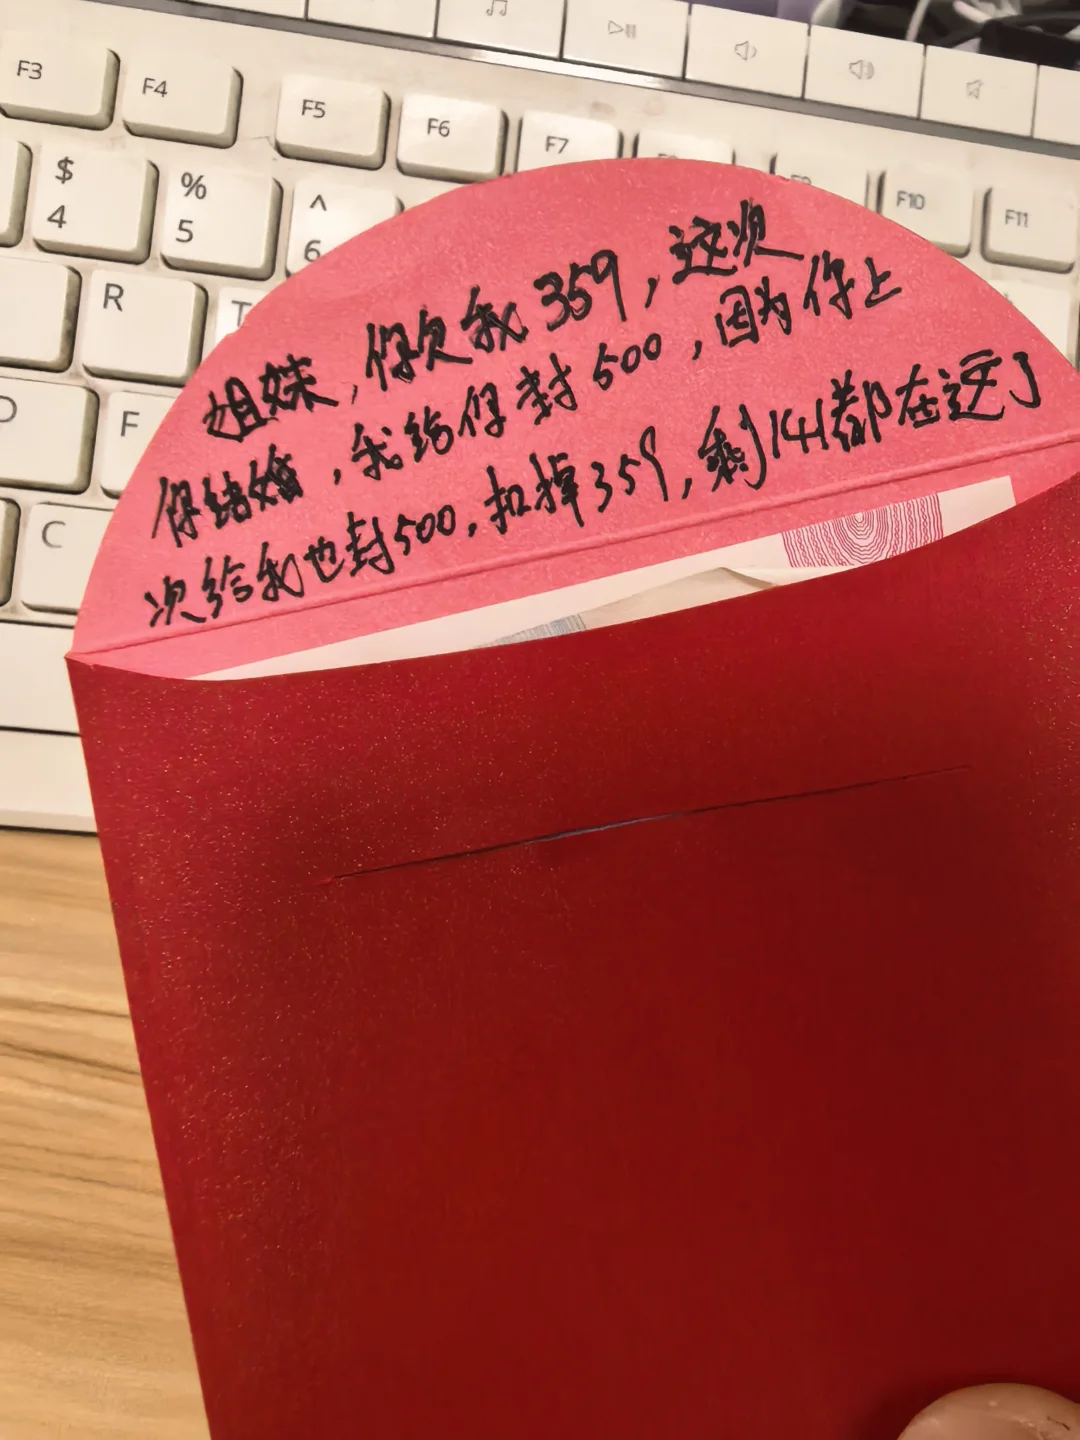 F3 F4 F5 F6 F7 F10 F11
$ 4 % 5 ^ 6
R T
D F
C
姐妹,你欠我359,这次
你结婚,我给你封500,因为你上
次给我也封500,扣掉359,剩141都在这了